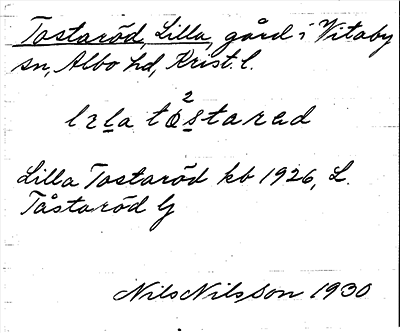 Tostaröd, Lilla, gård i Vitaby
sn, Albo hd, Krist. l.
2
lɩla tostarød
Lilla Tostaröd kb 1926, L.
Tåstaröd G
Nils Nilsson 1930